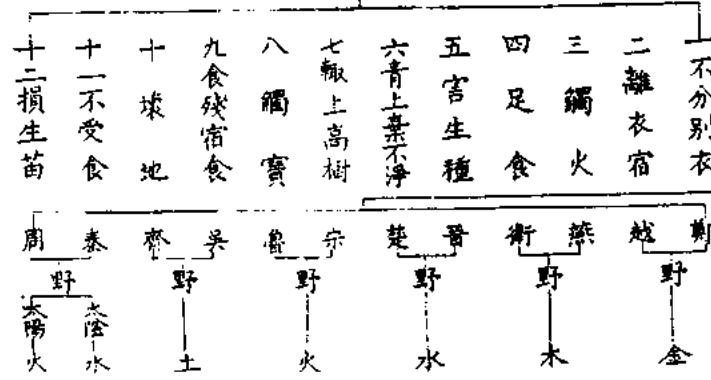 一不分别衣
二離衣宿
三觸火
四足食
五害生種
六青上棄不淨
七輙上高樹
八觸寶
九食殘宿食
十壊地
十一不受食
十二損生苗
鄭
越
燕
衛
晋
楚
宋
魯
吳
齊
秦
周
野
野
野
野
野
野
金
木
水
火
土
太陰水
太陽火